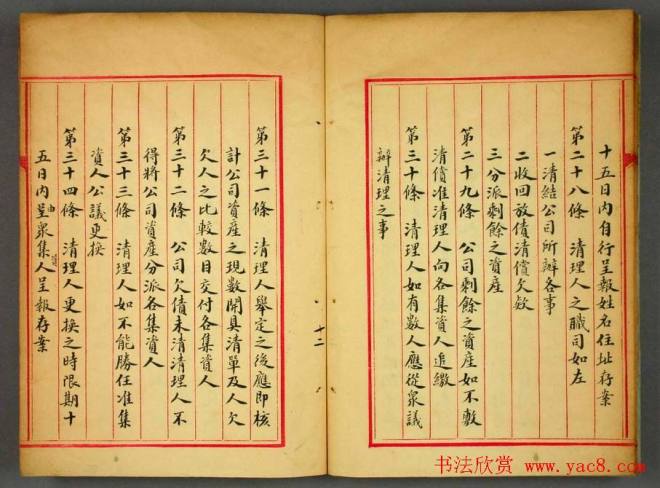 十五日內自行呈報姓名住址存案
第二十八條 清理人之職司如左
一清結公司所辦各事
二收回放債清償欠欵
三分派剩餘之資產
第二十九條 公司剩餘之資產如不敷
清償准清理人向各集資人追繳
第三十條 清理人如有數人應從眾議
辦清理之事
十二
第三十一條 清理人舉定之後應即核
計公司資產之現數開具清單及人欠
欠人之比較數目交付各集資人
第三十二條 公司欠債未清清理人不
得將公司資產分派各集資人
第三十三條 清理人如不能勝任准集
資人公議更換
第三十四條 清理人更換之時限期十
五日內由呈眾集資人呈報存案
书法欣赏 www.yac8.com